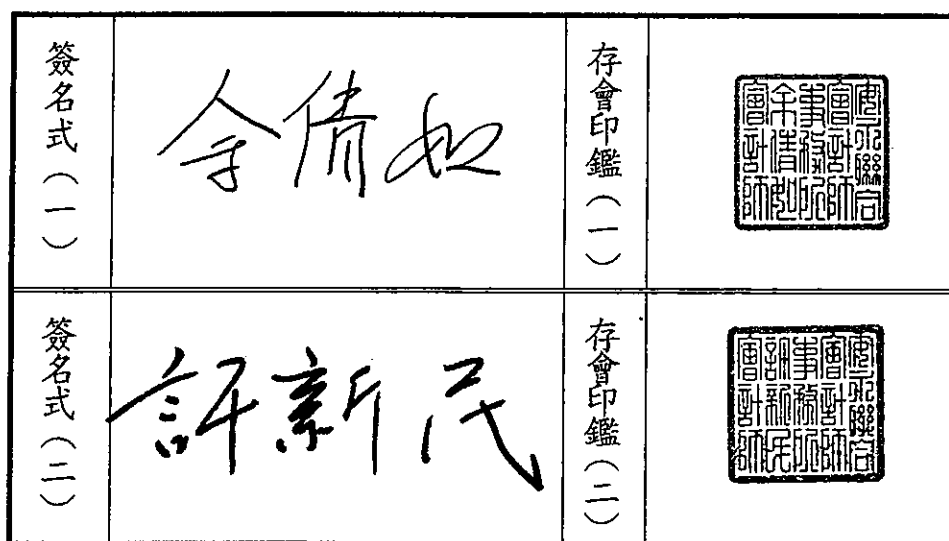 簽名式（一）
余倩如
存會印鑑（一）
安永聯合
會計師
事務所
余倩如
會計師
簽名式（二）
許新民
存會印鑑（二）
安永聯合
會計師
事務所
許新民
會計師